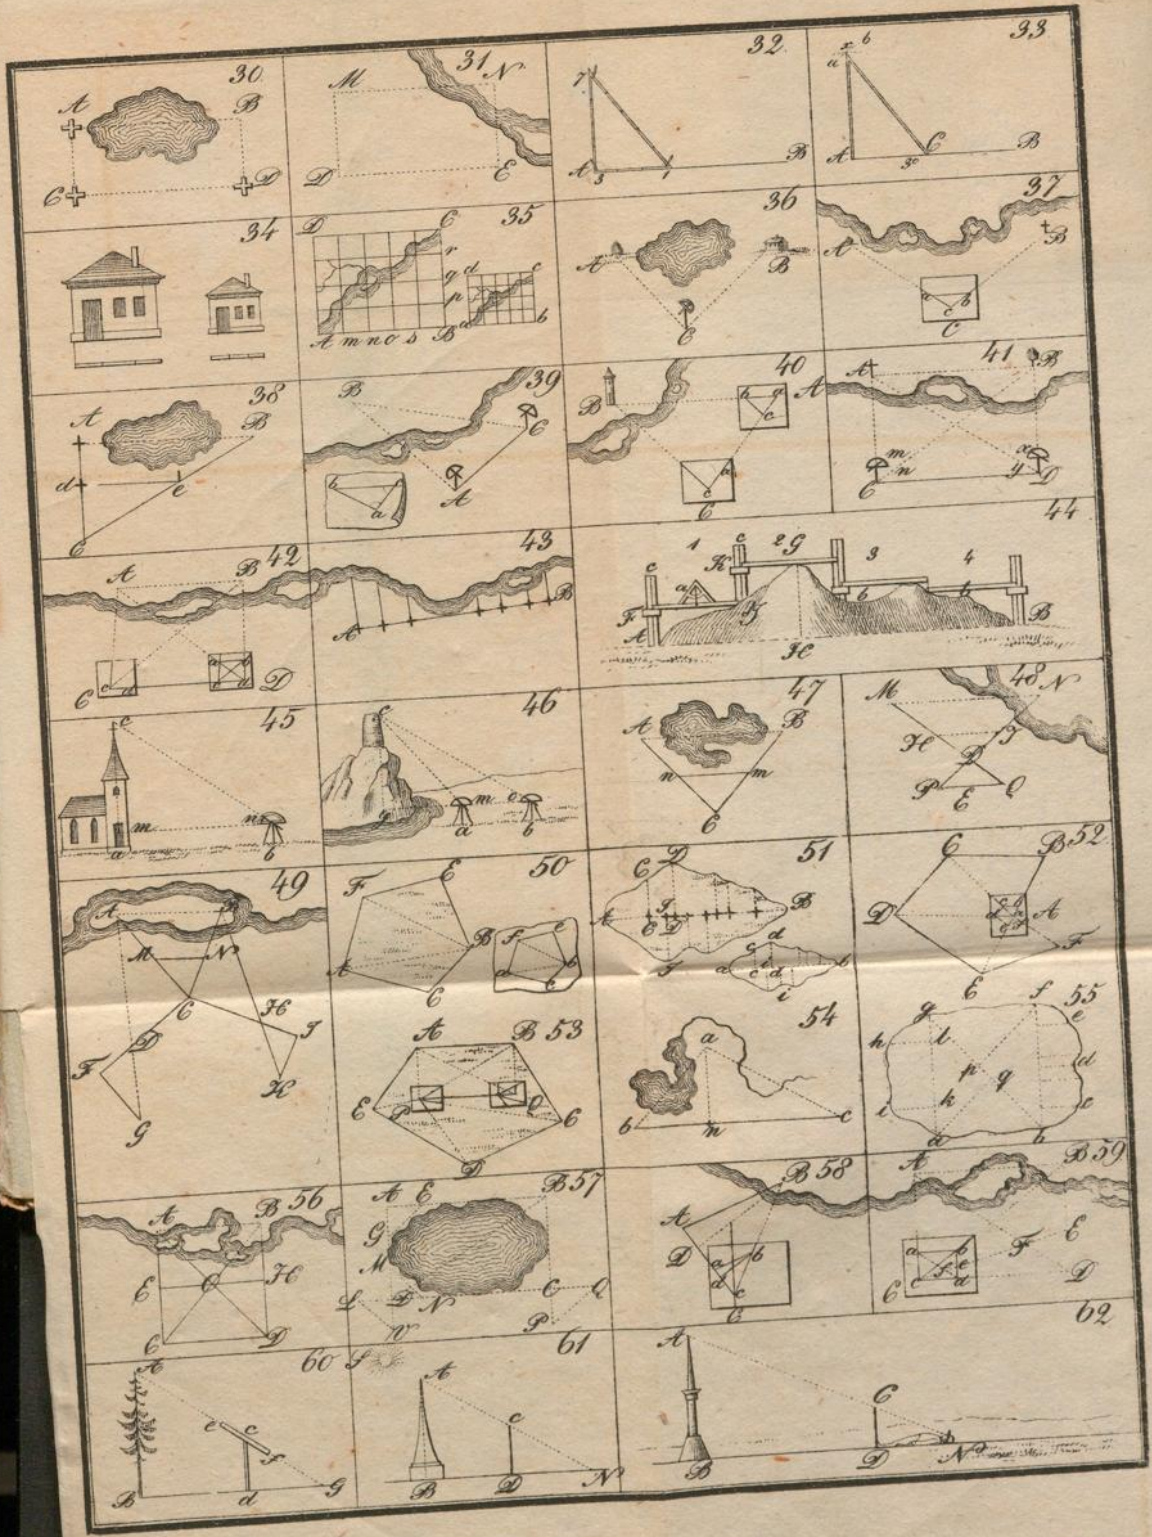 30
A B
C D
31
M N
D E
32
7
A 3 1 B
33
a x b
A 3º C B
34
35
D C
r
q d c
p
A m n o s B a b
36
A B
C
37
A B
a b
c
C
38
A B
d e
C
39
B C
b
a A
40
B b a
c
a
c
C
41
A B
A
m x
n y
C D
42
A B
a b
C c d c d D
43
A B
44
1 c 2 G 3 4
c K
a b b
F y
A H B
45
c
m n
a b
46
c
m o
g a b
47
A B
n m
C
48
M N
H I
D
P E Q
49
A B
M N
C H
D I
F K
G
50
F E
B f e
A a b
C c
51
C D
A I B
E D
I c d
a c d b
i
52
C B
D A
F
E
53
A B
E P Q C
D
54
a
b n c
55
g f e
h l
p q d
i k c
a b
56
A B
E O H
C D
57
A E B
G
M
L D N C Q
V P
58
A B
D a b
d c
C
59
A B
a b F E
e
C c f d D
60
A
e c
f
B d g
61
S
A
c
B D N
62
A
C
b
B D N